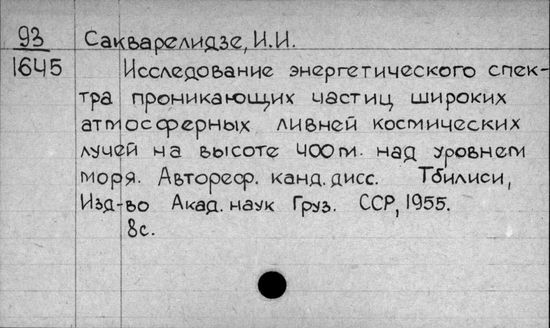 93 Сакварелидзе, И.И.
1645 Исследование энергетического спек-
тра проникающих частиц широких
атмосферных ливней космических
лучей на высоте 400 m. над уровнем
моря. Автореф. канд. дисс. Тбилиси,
Изд-во Акад. наук Груз. ССР, 1955.
8с.